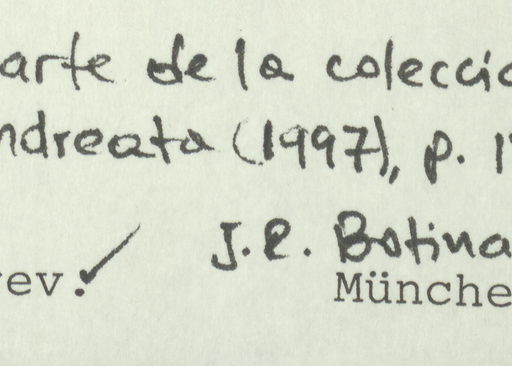 arte de la colecció
ndreata (1997), p. 1
J.R. Botina
rev.
Münche